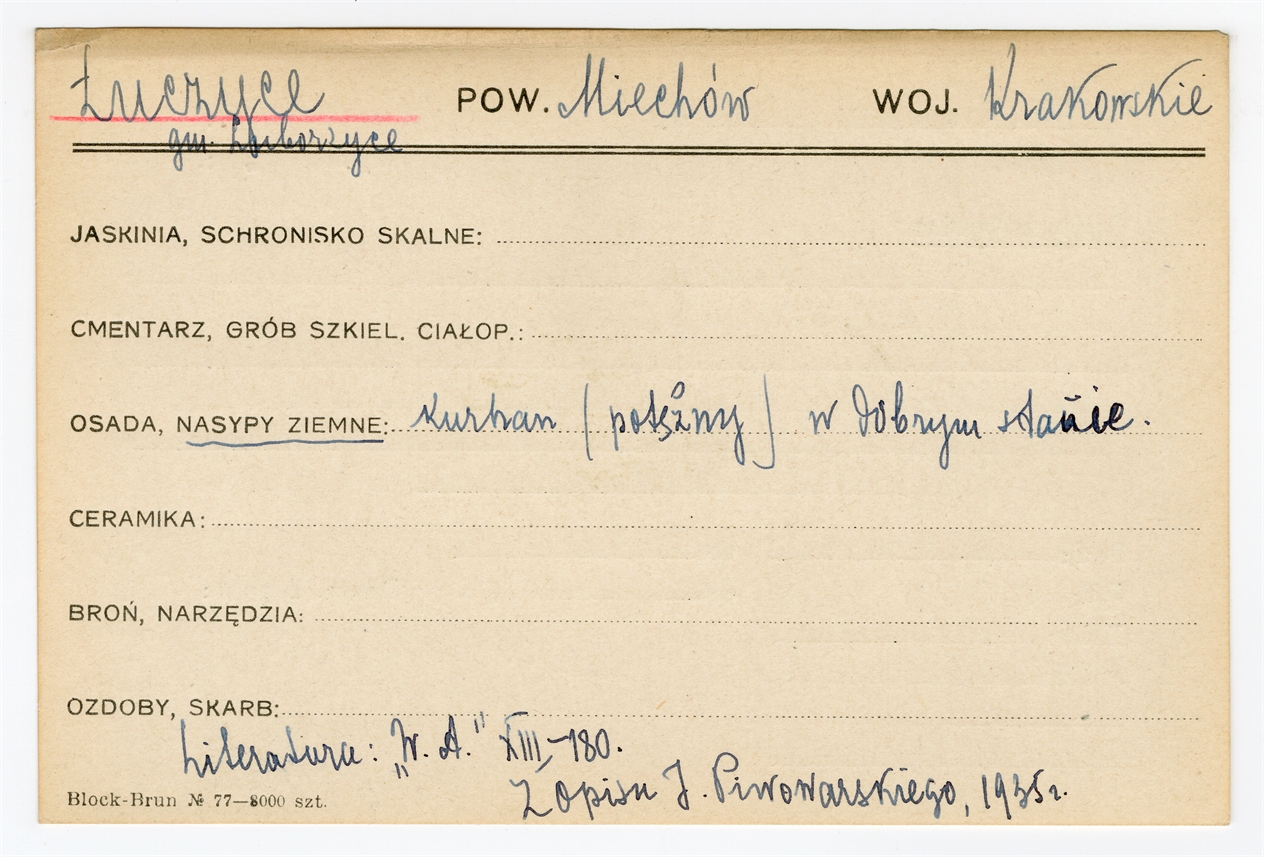 Łuczyce POW. Miechów WOJ. Krakowskie
gm. Łuborzyce
JASKINIA, SCHRONISKO SKALNE:
CMENTARZ, GRÓB SZKIEL. CIAŁOP.:
OSADA, NASYPY ZIEMNE: kurhan (potężny) w dobrym stanie.
CERAMIKA:
BROŃ, NARZĘDZIA:
OZDOBY, SKARB:
Literatura: „W. A." XIII-180.
Z opisu J. Piwowarskiego, 1935 r.
Block-Brun № 77—8000 szt.